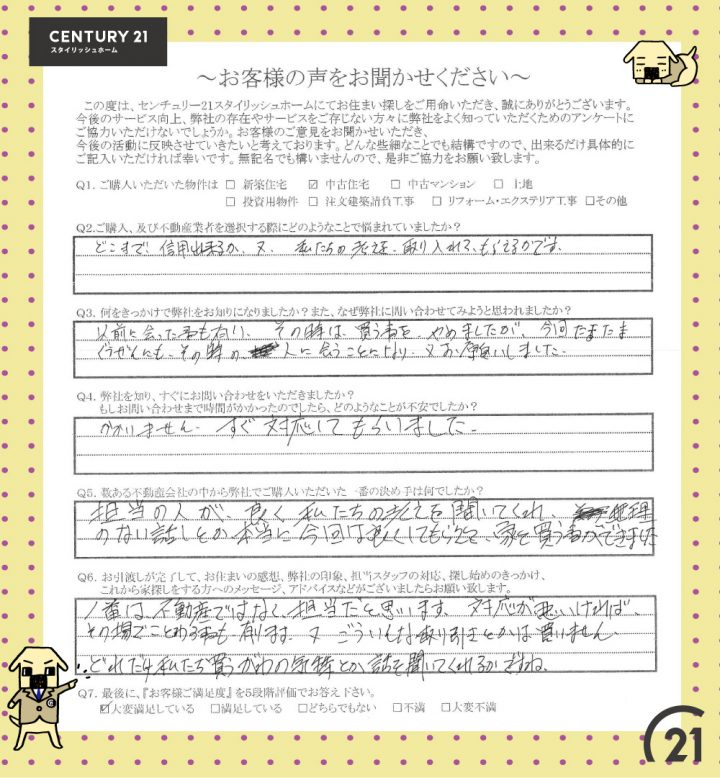 CENTURY 21
スタイリッシュホーム
～お客様の声をお聞かせください～
この度は、センチュリー21スタイリッシュホームにてお住まい探しをご用命いただき、誠にありがとうございます。
今後のサービス向上、弊社の存在やサービスをご存じない方々に弊社をよく知っていただくためのアンケートに
ご協力いただけないでしょうか。お客様のご意見をお聞かせいただき、
今後の活動に反映させていきたいと考えております。どんな些細なことでも結構ですので、出来るだけ具体的に
ご記入いただければ幸いです。無記名でも構いませんので、是非ご協力をお願い致します。
Q1. ご購入いただいた物件は □ 新築住宅 ☑ 中古住宅 □ 中古マンション □ 土地
□ 投資用物件 □ 注文建築請負工事 □ リフォーム・エクステリア工事 □その他
Q2.ご購入、及び不動産業者を選択する際にどのようなことで悩まれていましたか？
どこまで、信用出来るか、又、私たちの考えを、取り入れて、もらえるかです。
Q3. 何をきっかけで弊社をお知りになりましたか？また、なぜ弊社に問い合わせてみようと思われましたか？
以前に会った事も有り、その時は、買う事を、やめましたが、今回たまたま
ぐうぜんにも、その時の、人に会うことになり、又お願いしました。
Q4. 弊社を知り、すぐにお問い合わせをいただきましたか？
もしお問い合わせまで時間がかかったのでしたら、どのようなことが不安でしたか？
かかりません。すぐ対応してもらいました。
Q5. 数ある不動産会社の中から弊社でご購入いただいた一番の決め手は何でしたか？
担当の人が、良く私たちの考えを聞いてくれ、無理
のない話しとか本当に今回は良くしてもらえて、家を買う事ができました
Q6. お引渡しが完了して、お住まいの感想、弊社の印象、担当スタッフの対応、探し始めのきっかけ、
これから家探しをする方へのメッセージ、アドバイスなどがございましたらお願い致します。
1番は、不動産ではなく、担当だと思います。対応が悪いければ、
その場でことわる事も有ります。又ごういんな取り引きとかは買いません
どれだけ私たち買うがわの気持とか、話を聞いてくれるかですね。
Q7. 最後に、『お客様ご満足度』を5段階評価でお答え下さい。
☑大変満足している □満足している □どちらでもない □不満 □大変不満
21